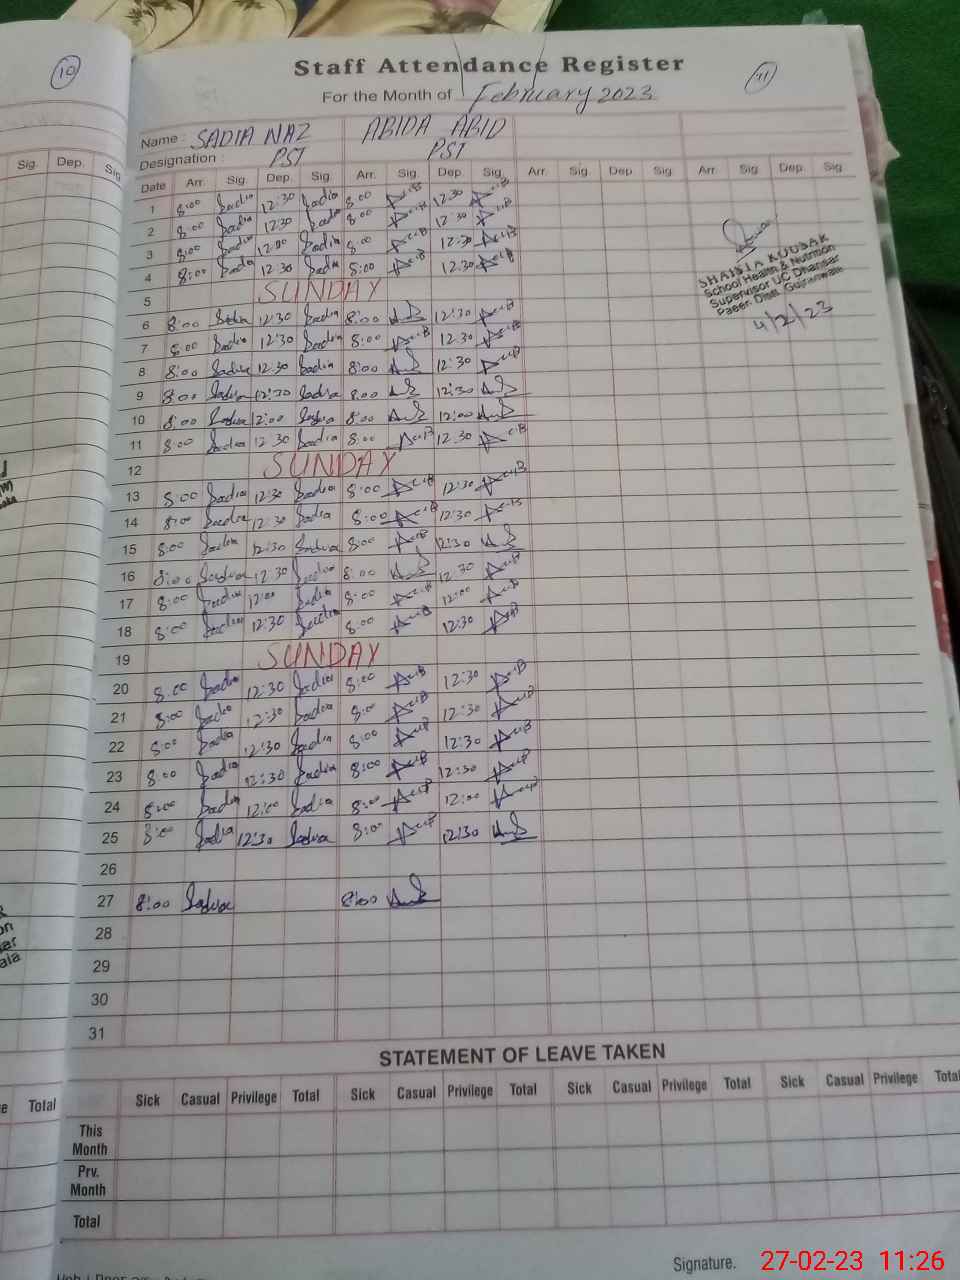 10
Staff Attendance Register
11
For the Month of February 2023
Name : SADIA NAZ ABIDA ABID
Designation : PST PST
Sig. Dep. Sig.
Date Arr. Sig. Dep. Sig. Arr. Sig. Dep. Sig. Arr. Sig. Dep. Sig. Arr. Sig. Dep. Sig.
1 8:00 Sadia 12:30 Sadia 8:00 12:30
2 8:00 Sadia 12:30 Sadia 8:00 12:30
3 8:00 Sadia 12:00 Sadia 8:00 12:30
4 8:00 Sadia 12:30 Sadia 8:00 12:30
SHAISTA KOUSAR
School Health & Nutrition
Supervisor UC Dhansar
Paeer. Distt. Gujranwala
4/2/23
5 SUNDAY
6 8:00 Sadia 12:30 Sadia 8:00 12:30
7 8:00 Sadia 12:30 Sadia 8:00 12:30
8 8:00 Sadia 12:30 Sadia 8:00 12:30
9 8:00 Sadia 12:30 Sadia 8:00 12:30
10 8:00 Sadia 12:00 Sadia 8:00 12:00
11 8:00 Sadia 12:30 Sadia 8:00 12:30
12 SUNDAY
13 8:00 Sadia 12:30 Sadia 8:00 12:30
14 8:00 Sadia 12:30 Sadia 8:00 12:30
15 8:00 Sadia 12:30 Sadia 8:00 12:30
16 8:00 Sadia 12:30 Sadia 8:00 12:30
17 8:00 Sadia 12:00 Sadia 8:00 12:00
18 8:00 Sadia 12:30 Sadia 8:00 12:30
19 SUNDAY
20 8:00 Sadia 12:30 Sadia 8:00 12:30
21 8:00 Sadia 12:30 Sadia 8:00 12:30
22 8:00 Sadia 12:30 Sadia 8:00 12:30
23 8:00 Sadia 12:30 Sadia 8:00 12:30
24 8:00 Sadia 12:00 Sadia 8:00 12:00
25 8:00 Sadia 12:30 Sadia 8:00 12:30
26
27 8:00 Sadia 8:00
28
29
30
31
STATEMENT OF LEAVE TAKEN
Total
Sick Casual Privilege Total Sick Casual Privilege Total Sick Casual Privilege Total Sick Casual Privilege Total
This
Month
Prv.
Month
Total
Signature.
27-02-23 11:26